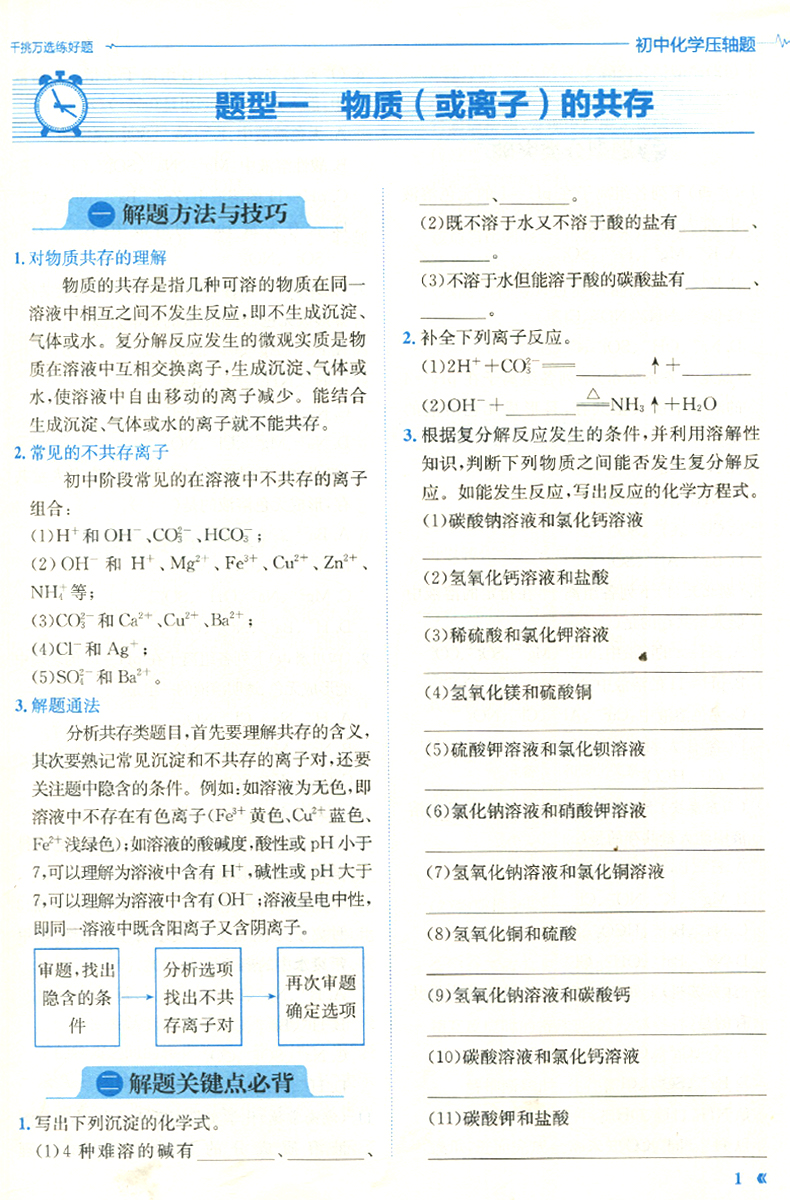 千挑万选练好题
初中化学压轴题
题型一 物质(或离子)的共存
一 解题方法与技巧
1. 对物质共存的理解
物质的共存是指几种可溶的物质在同一
溶液中相互之间不发生反应,即不生成沉淀、
气体或水。复分解反应发生的微观实质是物
质在溶液中互相交换离子,生成沉淀、气体或
水,使溶液中自由移动的离子减少。能结合
生成沉淀、气体或水的离子就不能共存。
2. 常见的不共存离子
初中阶段常见的在溶液中不共存的离子
组合:
(1)H⁺和OH⁻、CO₃²⁻、HCO₃⁻;
(2)OH⁻和 H⁺、Mg²⁺、Fe³⁺、Cu²⁺、Zn²⁺、
NH₄⁺等;
(3)CO₃²⁻和Ca²⁺、Cu²⁺、Ba²⁺;
(4)Cl⁻和Ag⁺;
(5)SO₄²⁻和Ba²⁺。
3. 解题通法
分析共存类题目,首先要理解共存的含义,
其次要熟记常见沉淀和不共存的离子对,还要
关注题中隐含的条件。例如:如溶液为无色,即
溶液中不存在有色离子(Fe³⁺黄色、Cu²⁺蓝色、
Fe²⁺浅绿色);如溶液的酸碱度,酸性或pH小于
7,可以理解为溶液中含有H⁺,碱性或pH大于
7,可以理解为溶液中含有OH⁻;溶液呈电中性,
即同一溶液中既含阳离子又含阴离子。
审题,找出
隐含的条
件
分析选项
找出不共
存离子对
再次审题
确定选项
二 解题关键点必背
1. 写出下列沉淀的化学式。
(1)4种难溶的碱有________、________、
________、________。
(2)既不溶于水又不溶于酸的盐有________、
________。
(3)不溶于水但能溶于酸的碳酸盐有________、
________。
2. 补全下列离子反应。
(1)2H⁺+CO₃²⁻══________↑+________
(2)OH⁻+________ △══ NH₃↑+H₂O
3. 根据复分解反应发生的条件,并利用溶解性
知识,判断下列物质之间能否发生复分解反
应。如能发生反应,写出反应的化学方程式。
(1)碳酸钠溶液和氯化钙溶液
(2)氢氧化钙溶液和盐酸
(3)稀硫酸和氯化钾溶液
(4)氢氧化镁和硫酸铜
(5)硫酸钾溶液和氯化钡溶液
(6)氯化钠溶液和硝酸钾溶液
(7)氢氧化钠溶液和氯化铜溶液
(8)氢氧化铜和硫酸
(9)氢氧化钠溶液和碳酸钙
(10)碳酸溶液和氯化钙溶液
(11)碳酸钾和盐酸
1